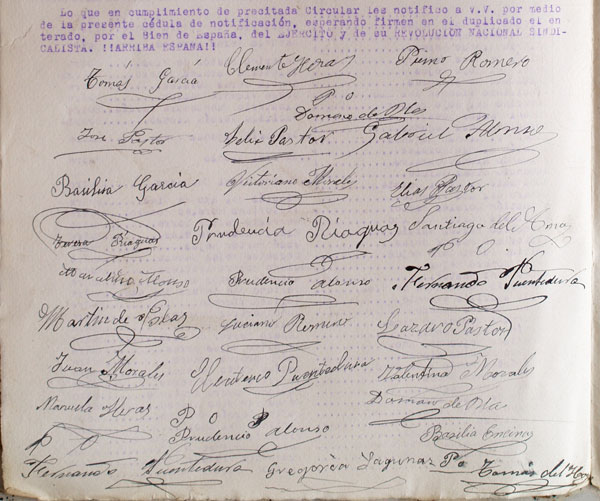 Lo que en cumplimiento de precitada Circular les notifico a V.V. por medio
de la presente cédula de notificación, esperando firmen en el duplicado el en
terado, por el Bien de España, del EJERCITO y de su REVOLUCION NACIONAL SINDI-
CALISTA. !!ARRIBA ESPAÑA!!
Tomás García Clemente Heras Primo Romero
P O
Domingo de Blas
José Pastor Felix Pastor Gabriel Alonso
Basilisa García Victoriano Morales Elias Pastor
Teresa Riaguas Prudencia Riaguas Santiago del
P. O.
Alonso Prudencio Alonso Fernando Fuentedura
Martin de Blas Luciano Romero Lazaro Pastor
Juan Morales Fuentedura Valentina Morales
Manuela Heras P O Damian de Blas
P O Prudencio Alonso Basilia Encinas
Fernando Fuentedura Gregorea Lagunas Po Tomás del